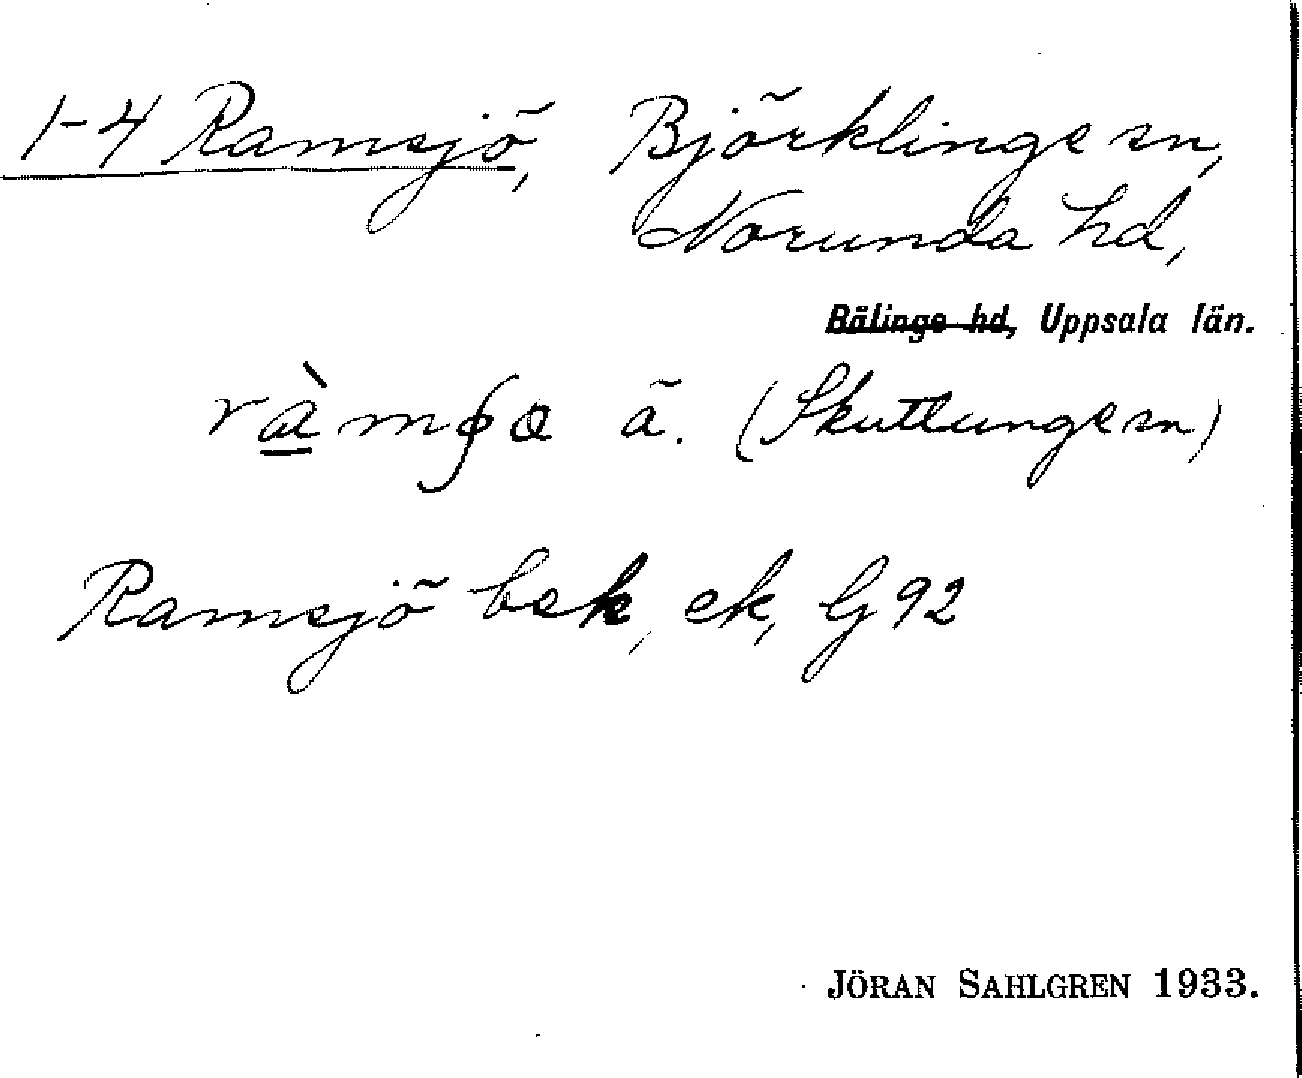 1-4 Ramsjö, Björklinge sn,
Norunda hd,
Bälinge hd, Uppsala län.
ä. (Skuttunge sn)
Ramsjö bek, ek, G 92
JÖRAN SAHLGREN 1933.